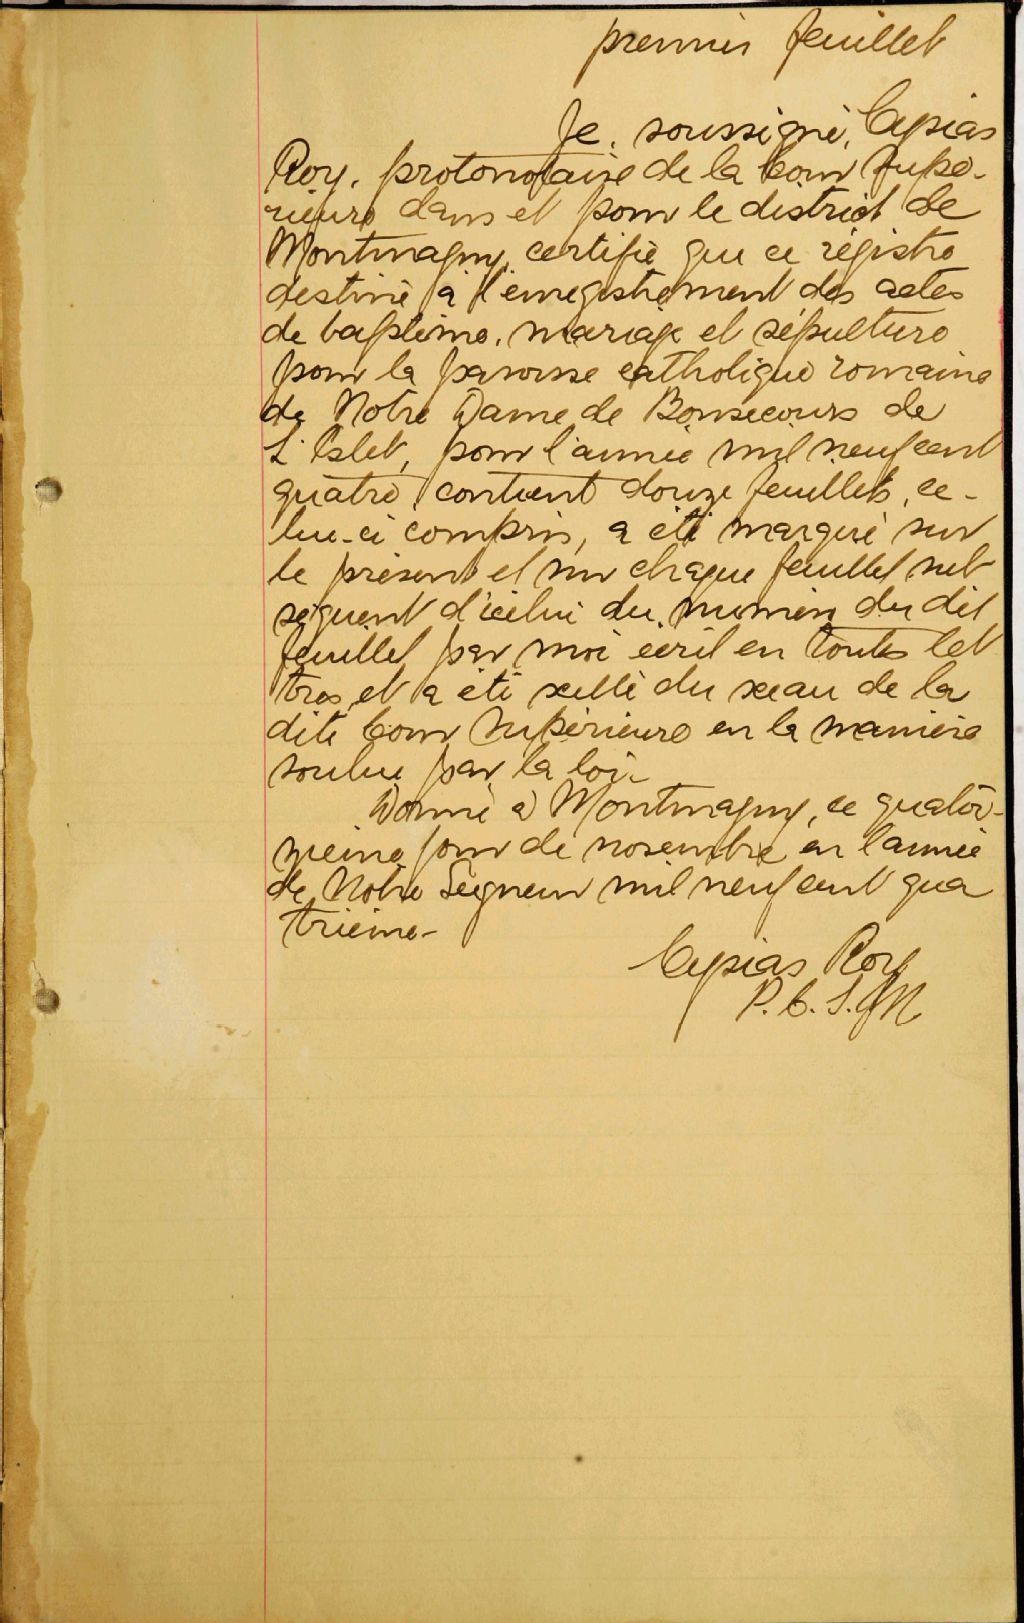 premier feuillet
Je, soussigné, Cypias
Roy, protonotaire de la Cour Supé-
rieure dans et pour le district de
Montmagny, certifie que ce régistre
destiné à l'enregistrement des actes
de baptême, mariage et sépulture
pour la paroisse catholique romaine
de Notre Dame de Bonsecours de
L'Islet, pour l'année mil neuf cent
quatre, contient douze feuillets, ce-
lui-ci compris, a été marqué sur
le présent et sur chaque feuillet sub
séquent d'icelui du numéro du dit
feuillet par moi écrit en toutes let
tres, et a été scellé du sceau de la
dite Cour Supérieure en la manière
voulue par la loi.
Donné à Montmagny, ce quator-
zième jour de novembre en l'année
de Notre Seigneur mil neuf cent qua
trième-
Cypias Roy
P. C. S. M